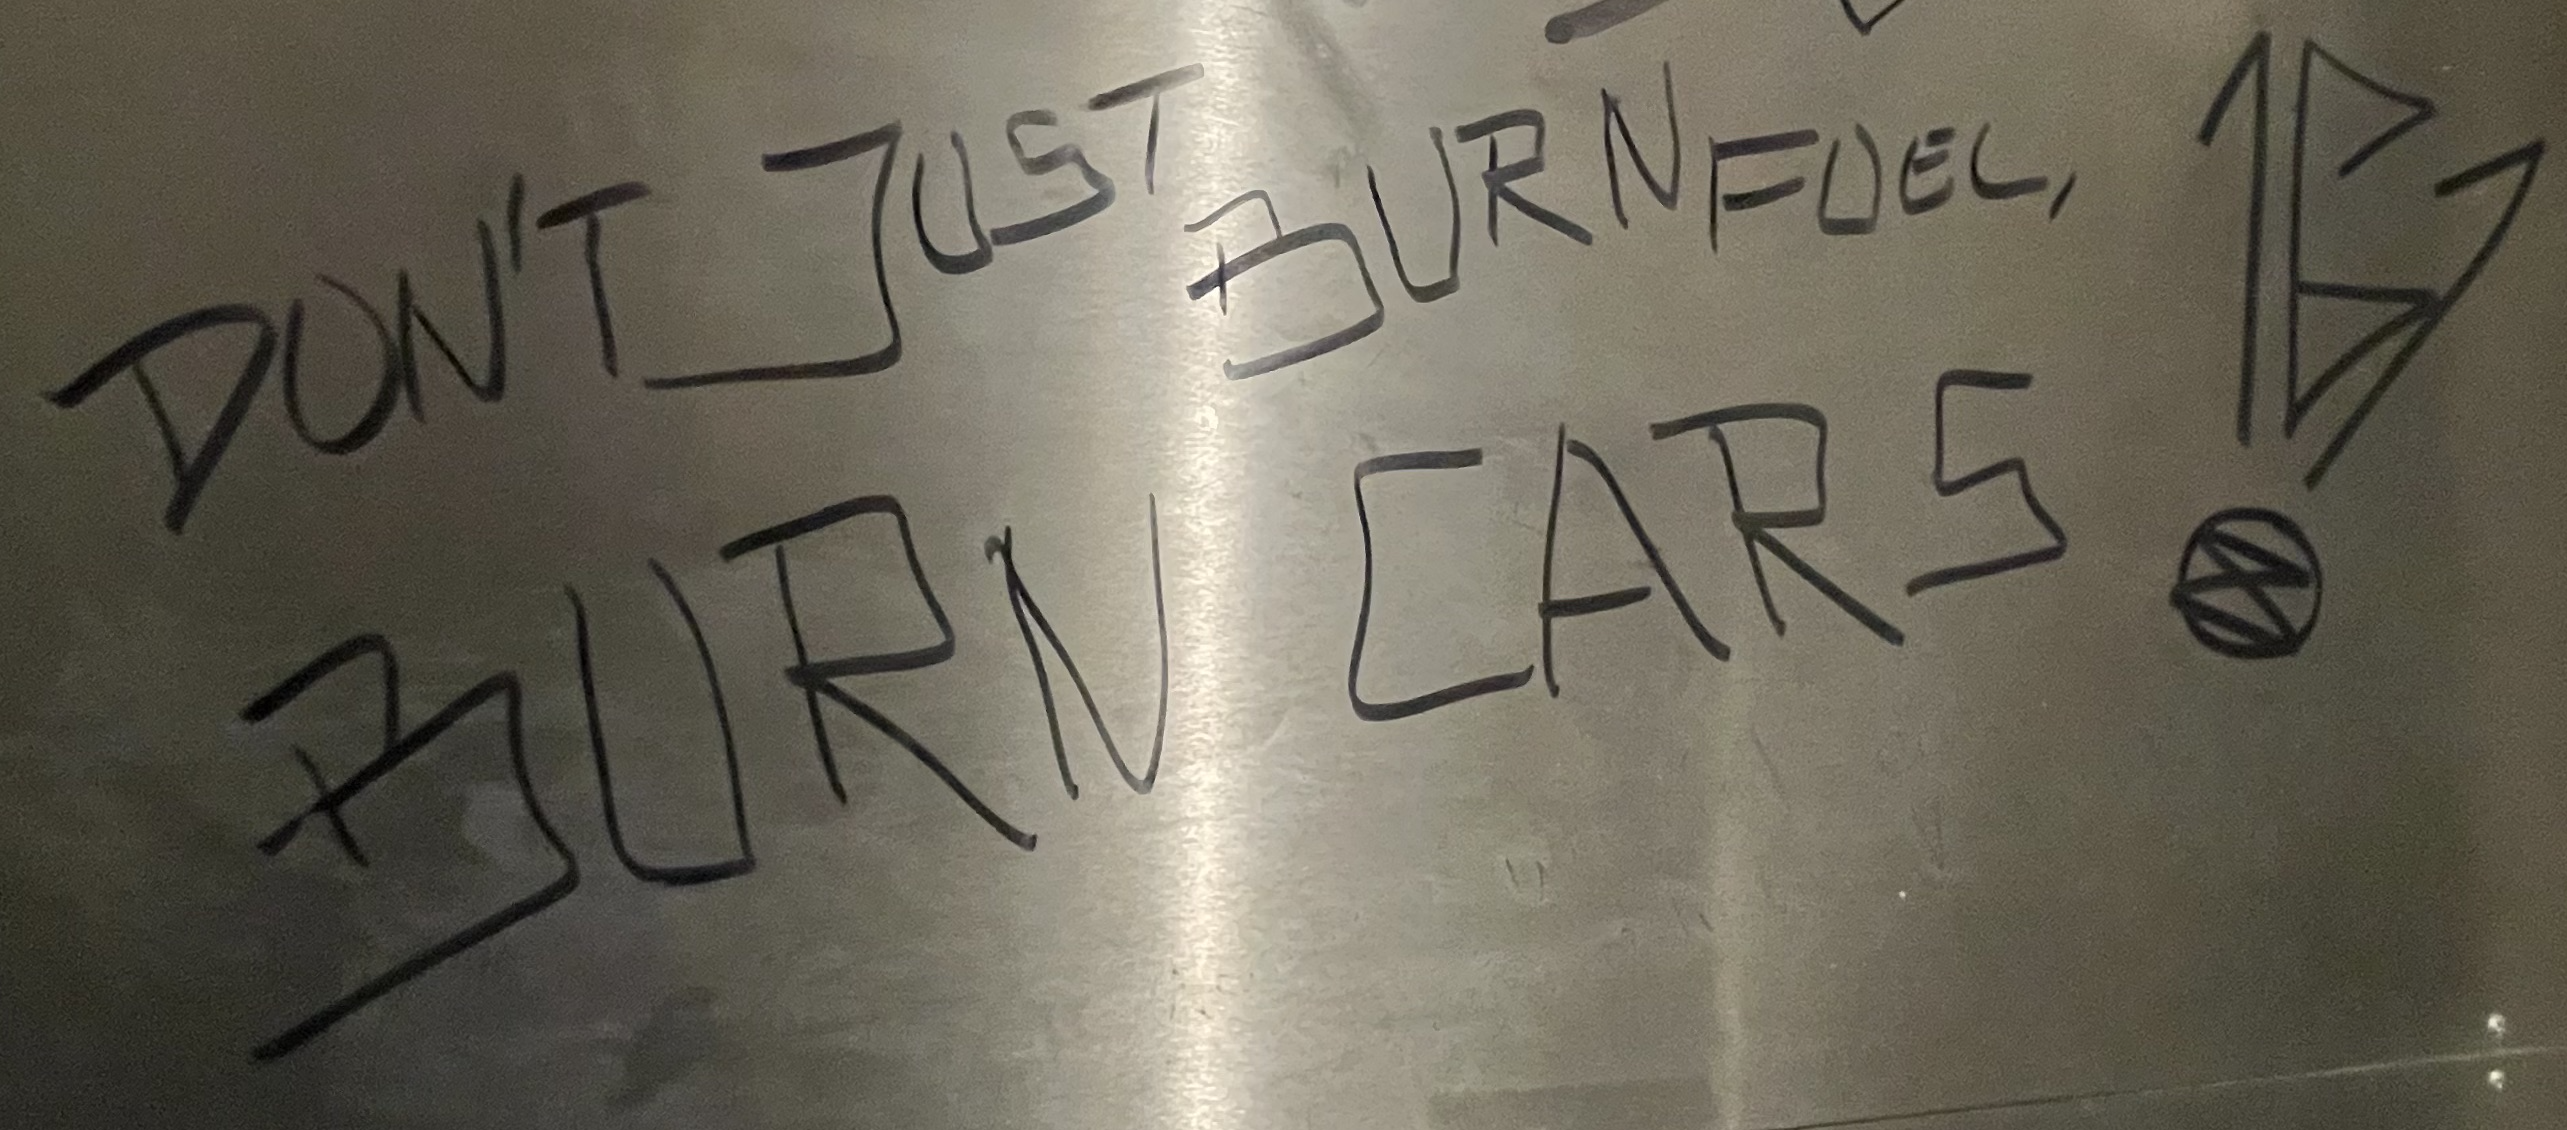 DON'T JUST BURN FUEL,
BURN CARS